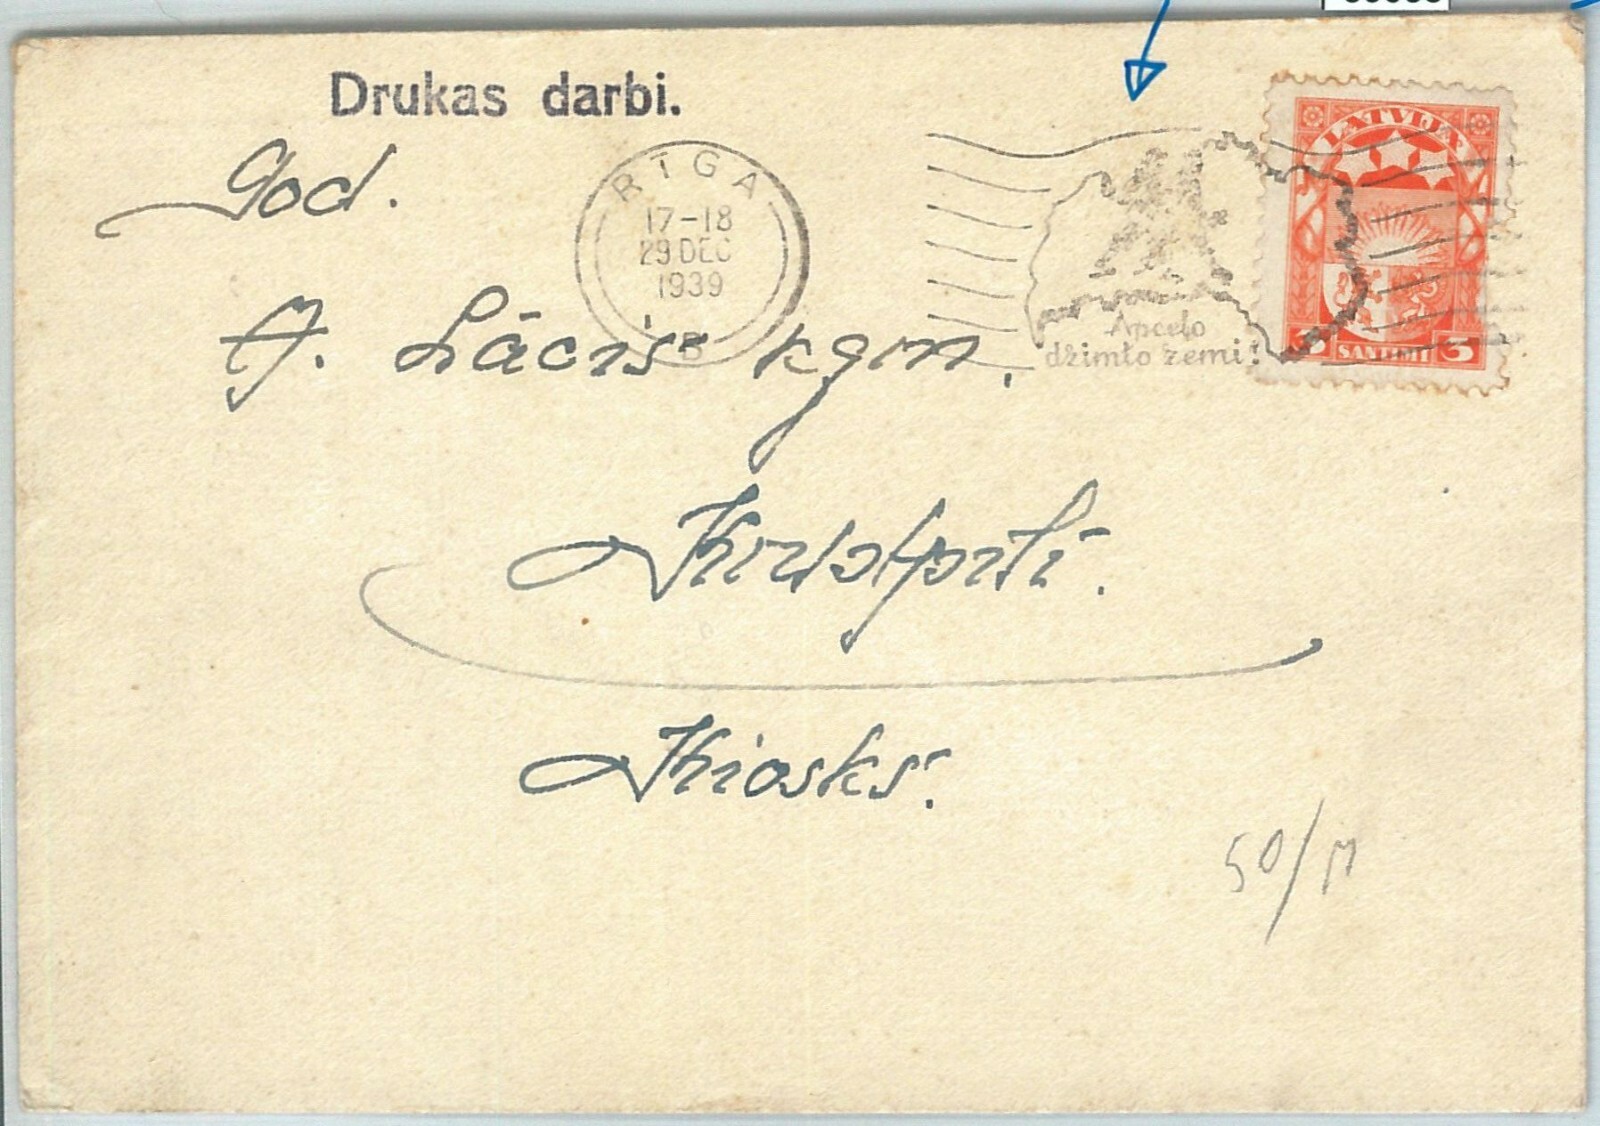 Drukas darbi.
God.
RĪGA
17-18
29 DEC
1939
B
A. Lācis kgm.
Apceļo
dzimto zemi!
LATVIJA
3 SANTIMI 3
Kiosks.
50/M